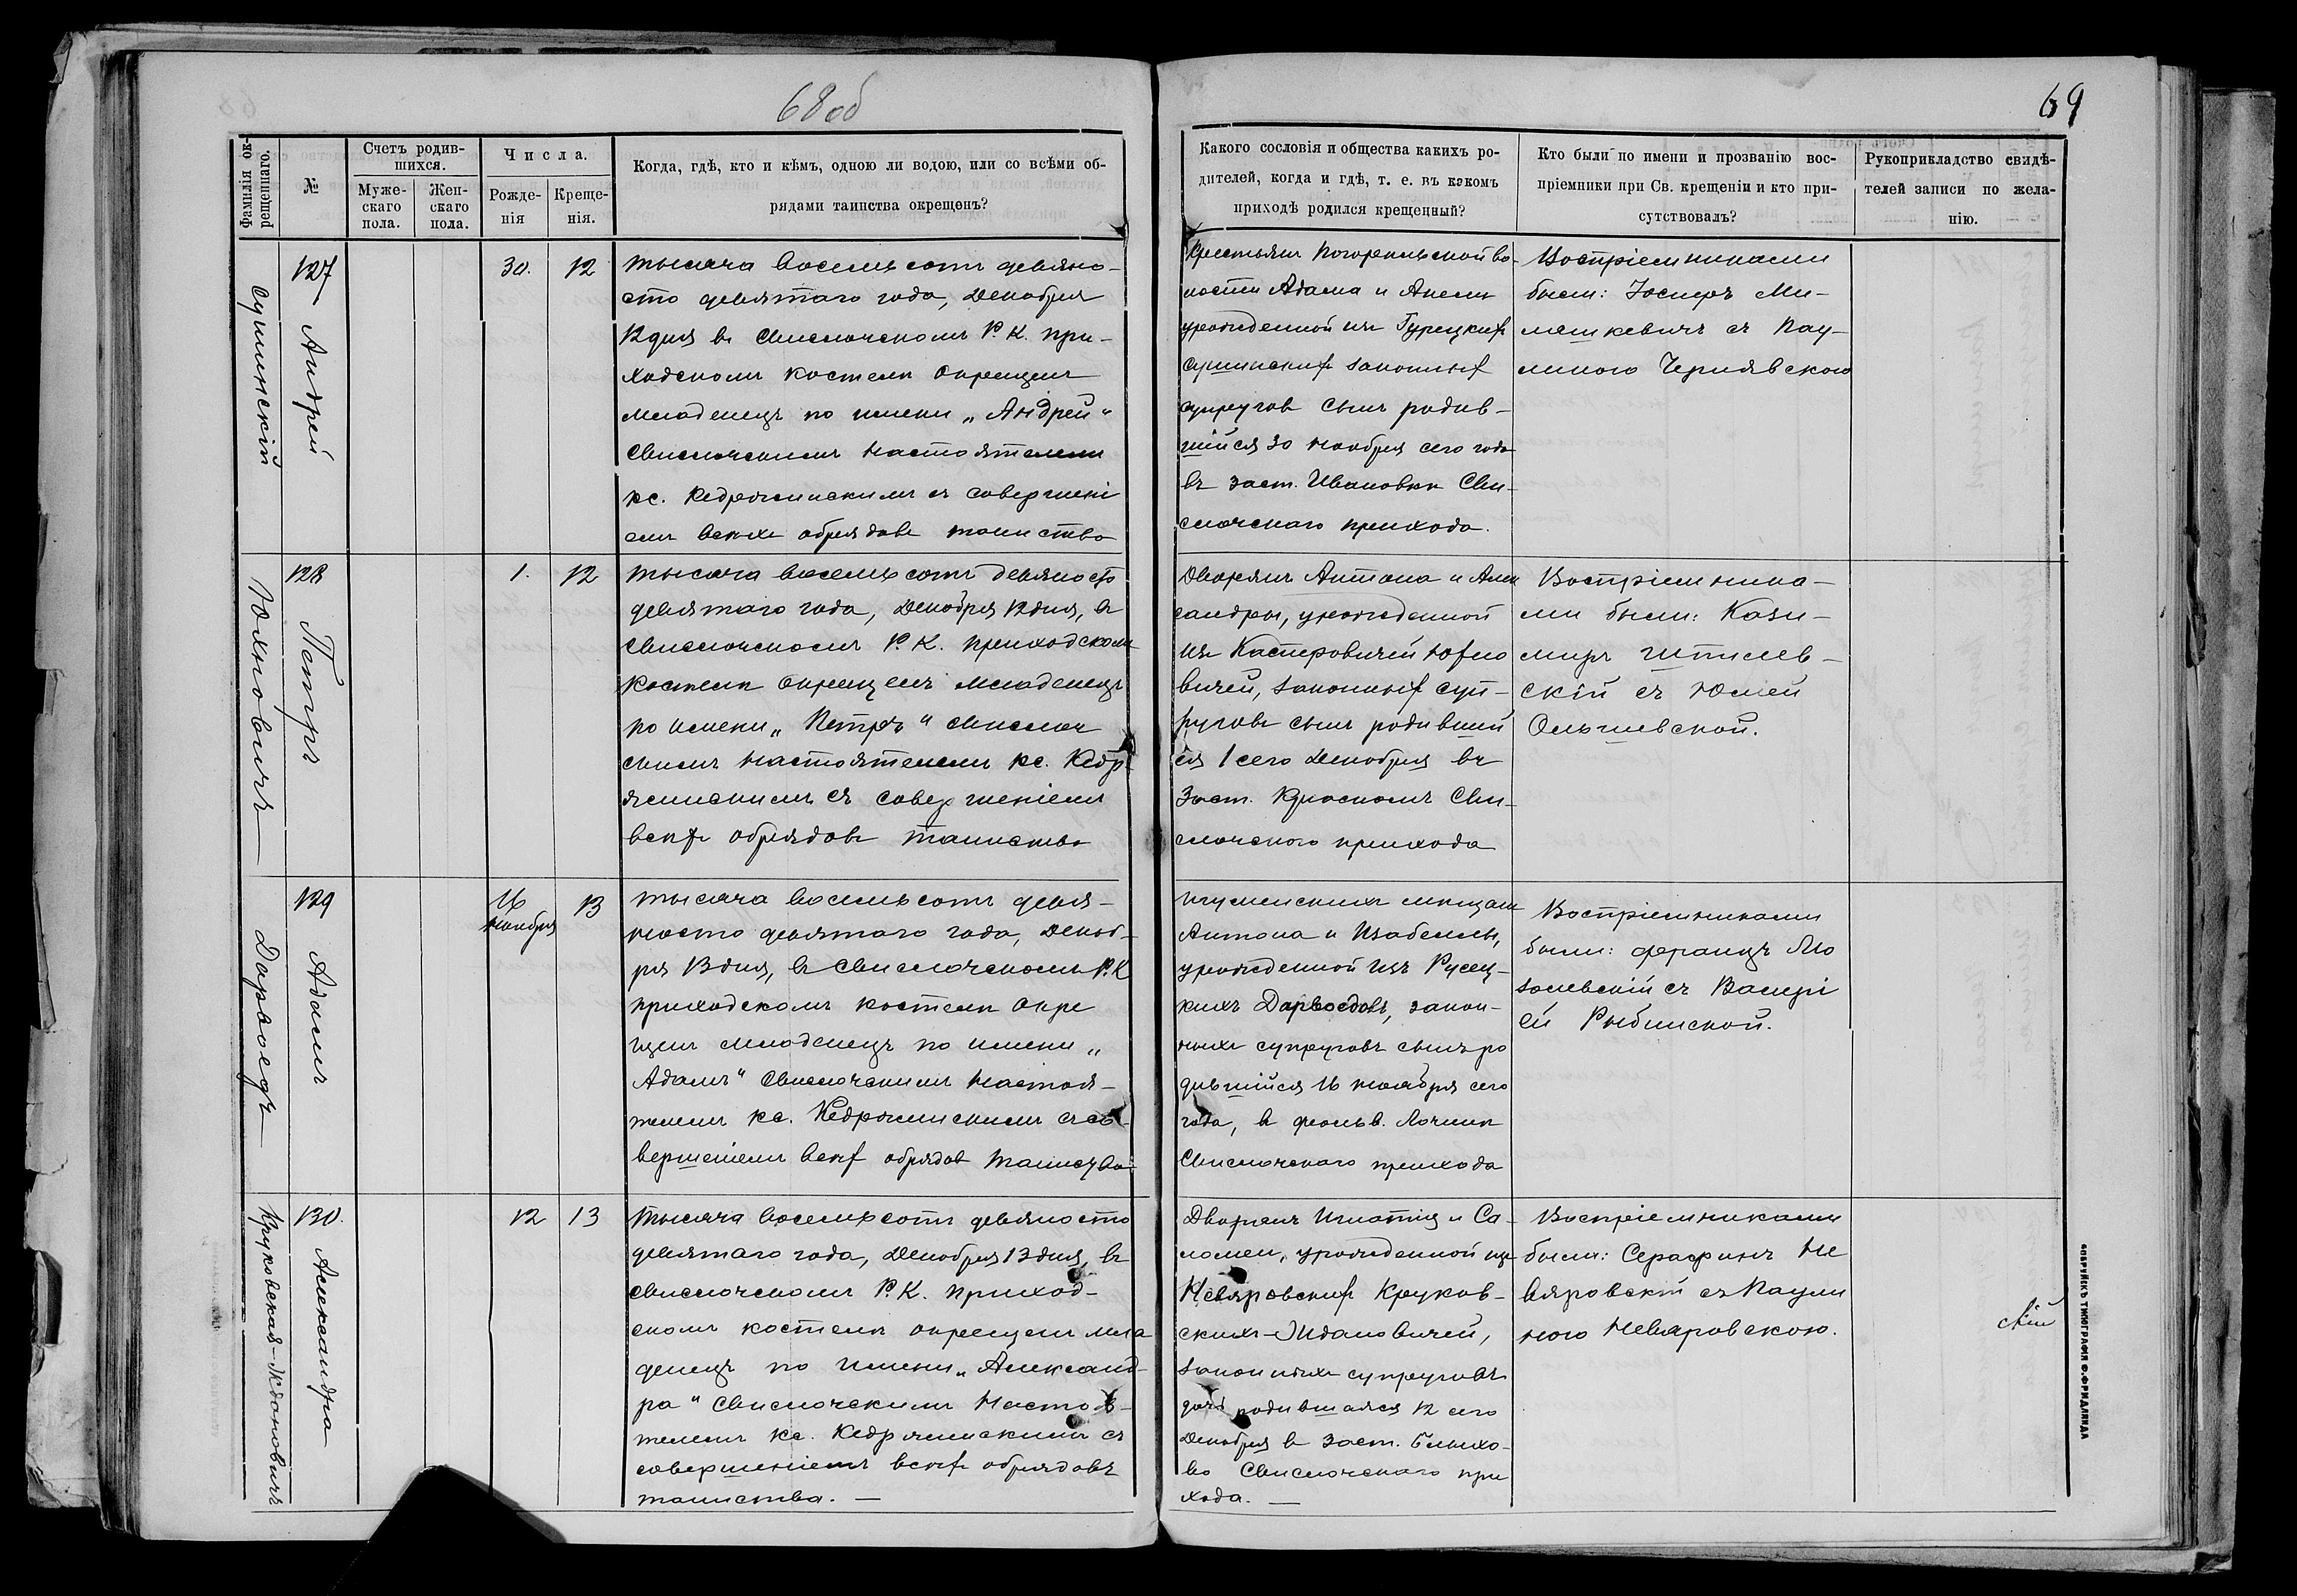 68 об
69
Фамилія ок-
рещеннаго.
№
Счетъ родив-
шихся.
Муже-
скаго
пола.
Жен-
скаго
пола.
Числа.
Рожде-
нія
Креще-
нія.
Когда, гдѣ, кто и кѣмъ, одною ли водою, или со всѣми об-
рядами таинства окрещенъ?
Какого сословія и общества какихъ ро-
дителей, когда и гдѣ, т. е. въ какомъ
приходѣ родился крещенный?
Кто были по имени и прозванію вос-
пріемники при Св. крещеніи и кто при-
сутствовалъ?
Рукоприкладство свидѣ-
телей записи по жела-
нію.
Сушинскій
127
Андрей
30.
12
Тысяча восемьсотъ девяно-
сто девятаго года, Декабря
12 дня въ Свислочскомъ Р. К. при-
ходскомъ костелѣ окрещенъ
младенецъ по имени „Андрей“
Свислочскимъ Настоятелемъ
кс. Кедржинскимъ съ совершені
емъ всѣхъ обрядовъ таинства
Крестьянъ Погорельской во-
лости Адама и Анели
урожденной изъ Гурецкихъ
Сушинскихъ законныхъ
супруговъ сынъ родив-
шійся 30 Ноября сего года
въ заст. Ивановкѣ Сви-
слочскаго прихода.
Воспріемниками
были: Іосифъ Ми-
лашкевичъ съ Пау-
линою Чернявскою
Юхновичъ
128
Петръ
1.
12
Тысяча восемьсотъ девяносто
девятаго года, Декабря 12 дня, въ
Свислочскомъ Р. К. приходскомъ
костелѣ окрещенъ младенецъ
по имени „Петръ“ Свислоч
скимъ Настоятелемъ кс. Кедр-
жинскимъ съ совершеніемъ
всѣхъ обрядовъ таинства
Дворянъ Антона и Алек
сандры, урожденной
изъ Касперовичей Юхно
вичей, законныхъ суп-
руговъ сынъ родивший
ся 1 сего Декабря въ
Заст. Красномъ Сви-
слочского прихода
Воспріемника-
ми были: Кази-
миръ Шпилев-
скій съ Юліей
Ольшевской.
Дармоедъ
129
Адамъ
16
Ноября
13
Тысяча восемьсотъ девя-
носто девятаго года, Декаб-
ря 13 дня, въ Свислочскомъ Р. К
приходскомъ костелѣ окре
щенъ младенецъ по имени „
Адамъ“ Свислочскимъ Настоя-
телемъ кс. Кедржинскимъ съ со-
вершеніемъ всѣхъ обрядовъ таинства
Игуменскихъ мѣщанъ
Антона и Изабеллы,
урожденной изъ Русец-
кихъ Дармоедовъ, закон-
ныхъ супруговъ сынъ ро
дившійся 16 Ноября сего
года, въ фольв.
Свислочскаго прихода
Воспріемниками
были: Францъ
съ Валері
ей Рыбинской.
Круковская-Ждановичъ
130.
Александра
12
13
Тысяча восемьсотъ девяносто
девятаго года, Декабря 13 дня, въ
Свислочскомъ Р. К. приход-
скомъ костелѣ окрещенъ мла
денецъ по имени „Александ-
ра“ Свислочскимъ Настоя-
телемъ кс. Кедржинскимъ съ
совершеніемъ всѣхъ обрядовъ
таинства. —
Дворянъ Игнатія и Са-
ломеи, урожденной изъ
Невяровскихъ Круков-
скихъ-Ждановичей,
законныхъ супруговъ
дочь родившаяся 12 сего
Декабря въ заст.
Свислочскаго при
хода. —
Воспріемниками
были: Серафинъ Не
вяровскій съ Паули
ною Невяровскою.
БОБРУЙСКЪ ТИПОГРАФІЯ Ф. ФРИДЛЯНДА